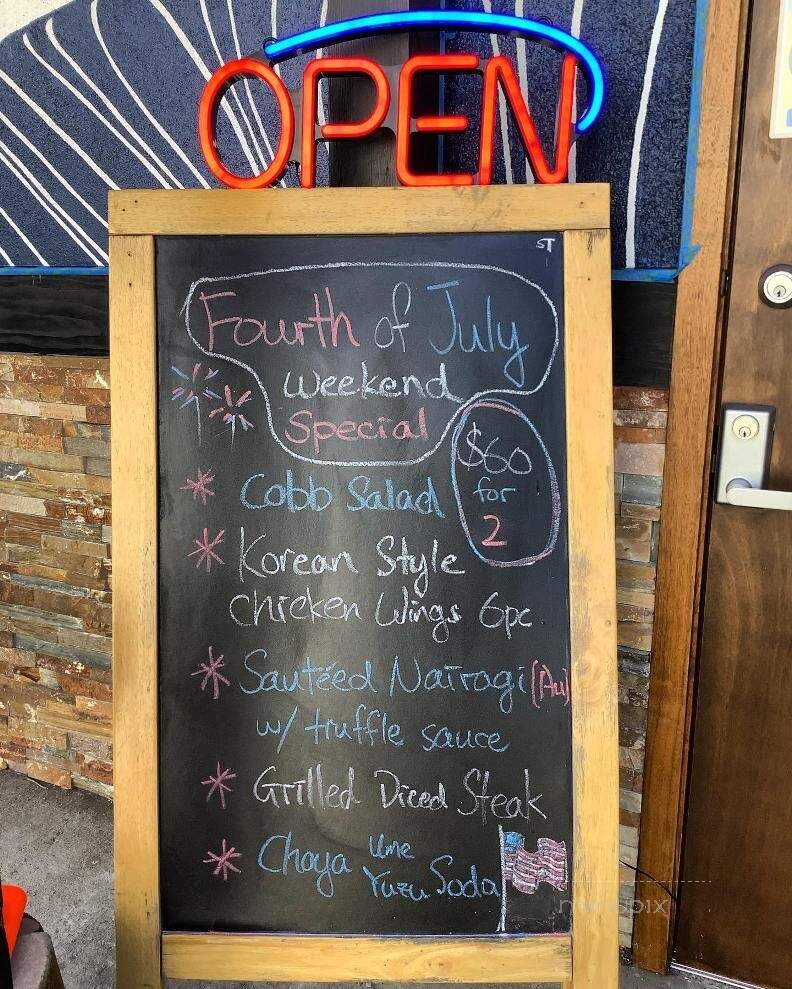 OPEN
ST
Fourth of July
Weekend
Special
$60
for
2
* Cobb Salad
* Korean Style
Chicken Wings 6pc
* Sautéed Nairagi (Au)
w/ truffle sauce
* Grilled Diced Steak
* Choya Ume
Yuzu Soda